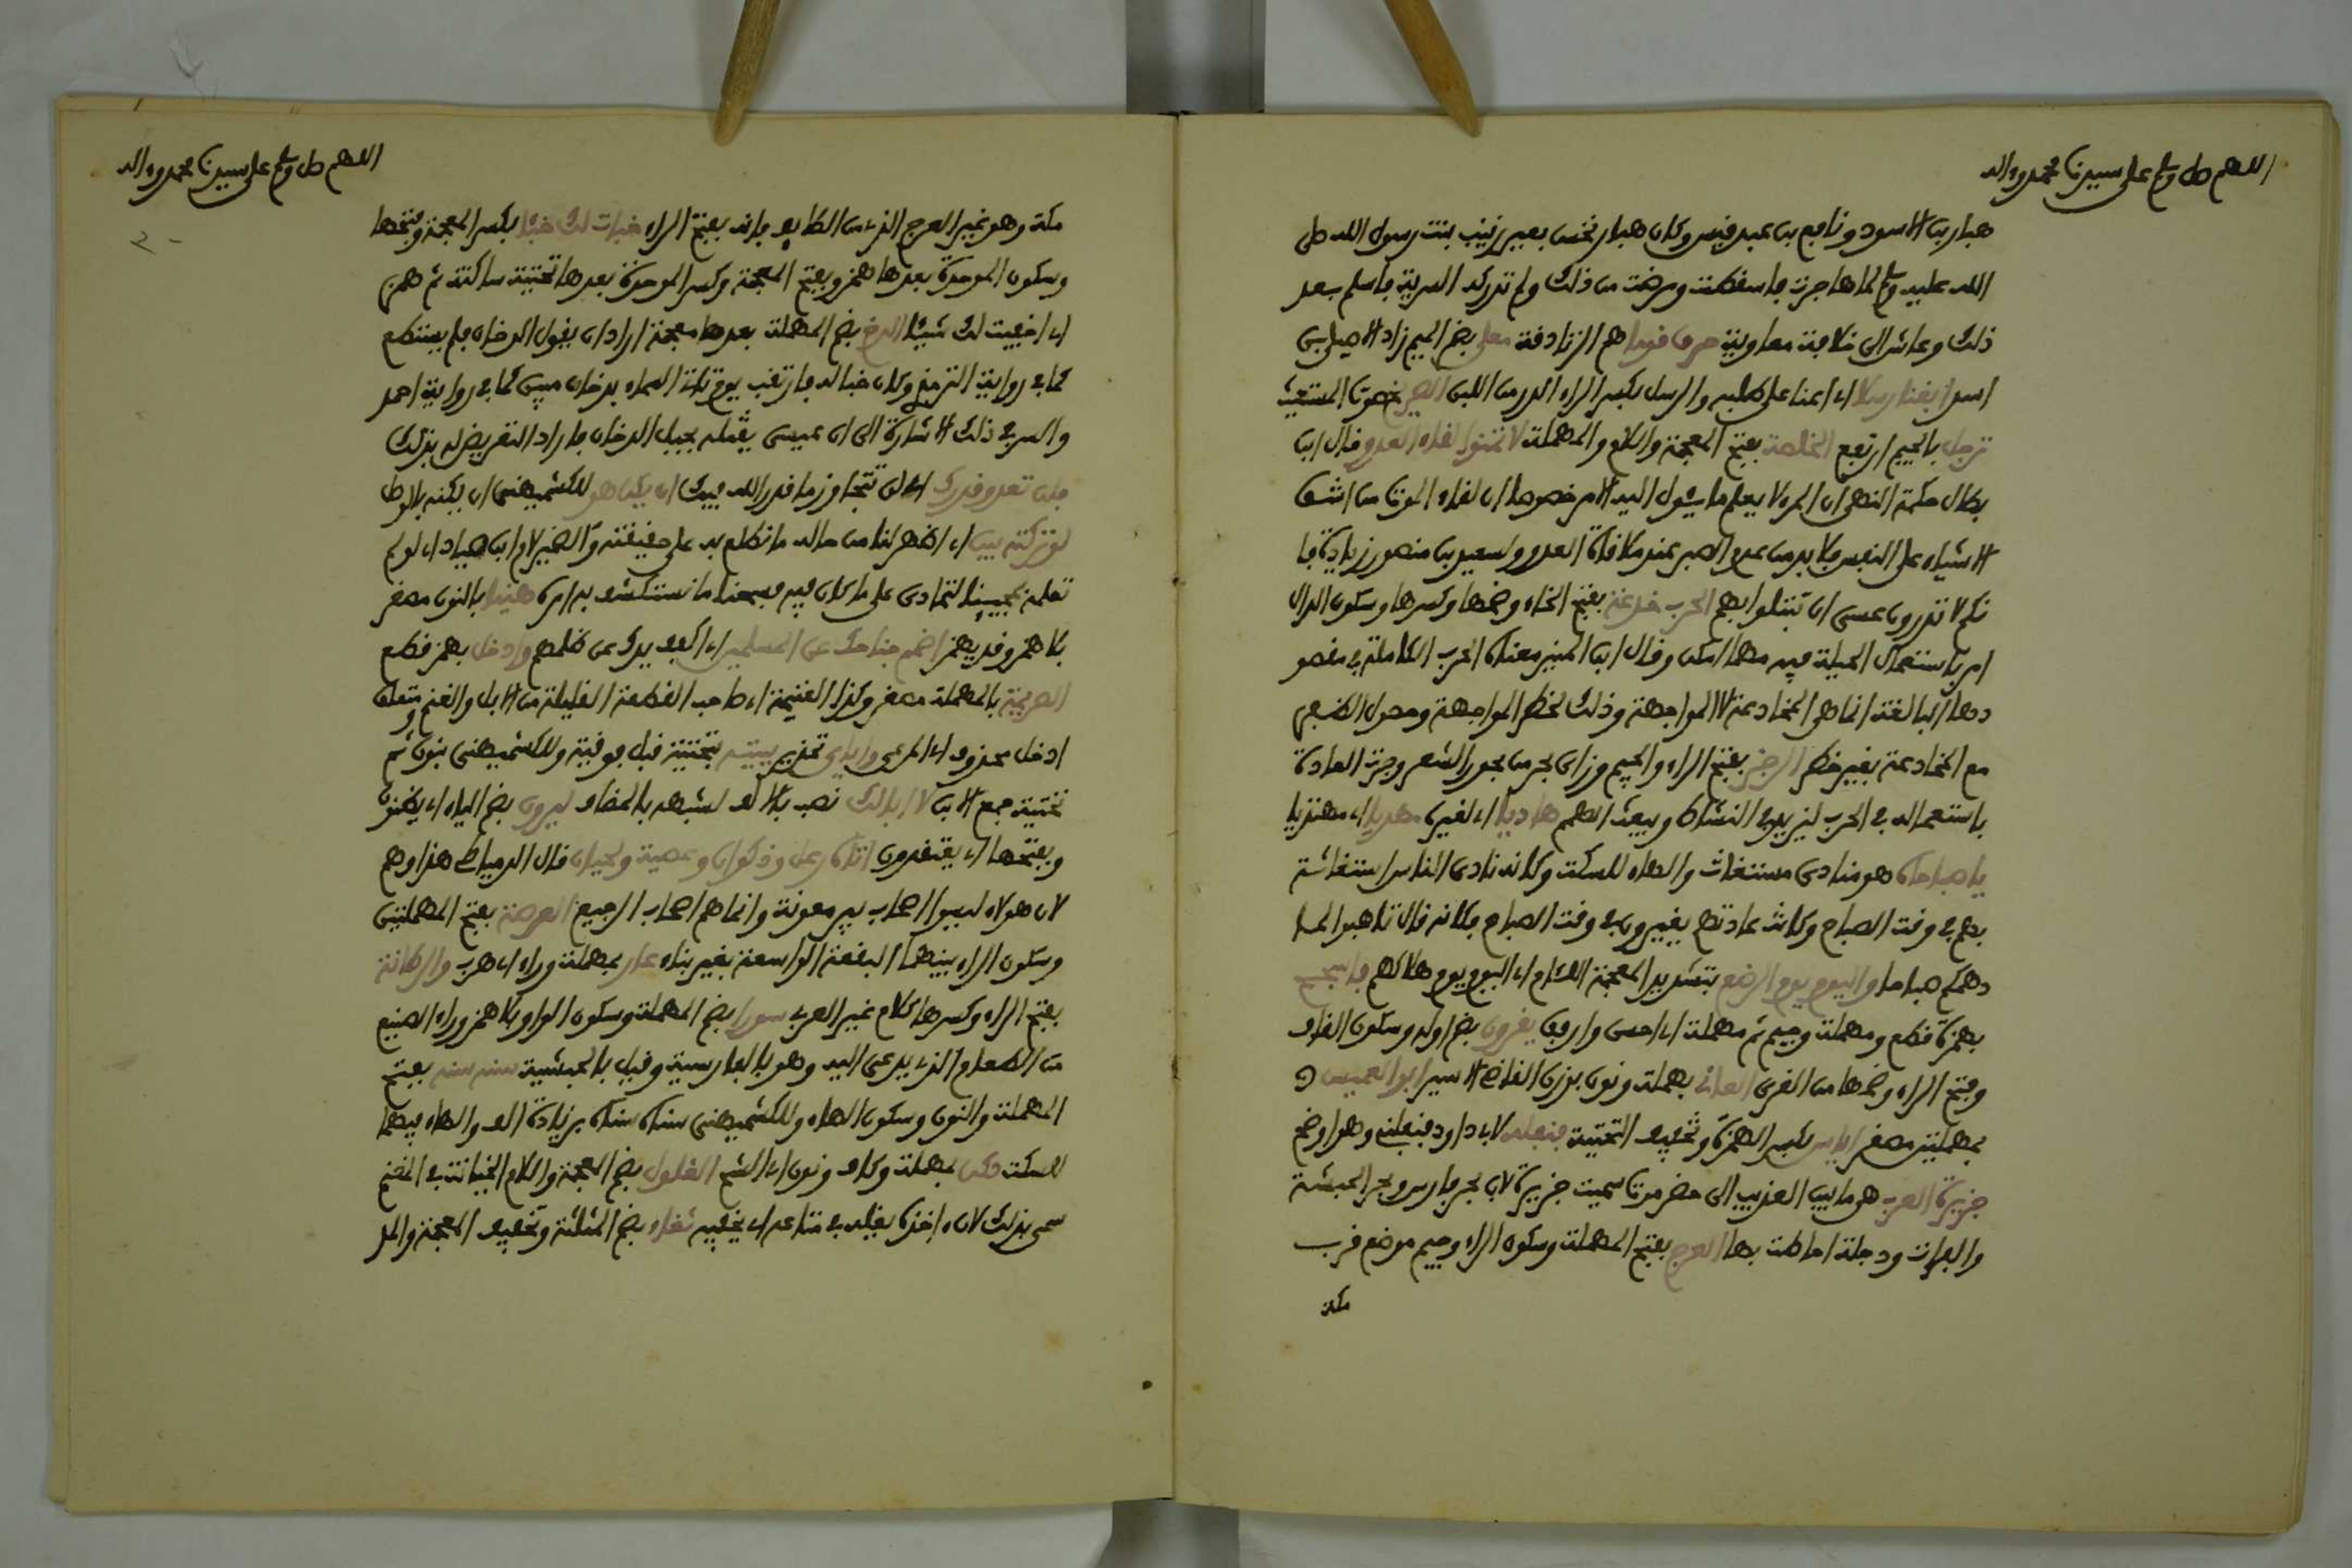 اللهم صل وسلم على سيدنا محمد وءاله
هبار بن الاسود ونافع بن عبد قيس وكان هبار نخس بعير زينب بنت رسول الله صلى
الله عليه وسلم لما هاجرت فاسقطت ومرضت من ذلك ولم تدركه السرية فاسلم بعد
ذلك وعاش الى خلافة معاوية حرق قوما هم الزنادقة معلى بضم الميم زاد الاصيلي بن
اسد ابغنا رسلا اي اعنا على طلبه والرسل بكسر الراء الدر من اللبن الصريخ صوت المستغيث
ترجل بالجيم ارتفع الخلصة بفتح المعجمة واللام والمهملة لا تمنوا لقاء العدو قال ابن
بطال حكمة النهي ان المرء لا يعلم ما يئول اليه الامر خصوصا ان لقاء الموت من اشق
الاشياء على النفس فلا بد من عدم الصبر عند ملاقاة العدو ولسعيد بن منصور زيادة فا
نكم لا تدرون عسى ان تبتلوا بهم الحرب خدعة بفتح الخاء وضمها وكسرها وسكون الدال
امر باستعمال الحيلة فيه مهما امكن وقال ابن المنير معناه الحرب الكاملة في مقصو
دها البالغة انما هي المخادعة لا المواجهة وذلك لخطر المواجهة وحصول الظفر
مع المخادعة بغير خطر الرجز بفتح الراء والجيم وزاي بحر من بحور الشعر وجرت العادة
باستعماله في الحرب ليزيد في النشاط ويبعث الهمم هاديا اي لغيره مهديا اي مهتديا
يا صباحاه هو منادى مستغاث والهاء للسكت وكانه نادى الناس استغاثة
بهم في وقت الصباح وكانت عادتهم يغيرون في وقت الصباح فكانه قال تاهبوا لما
دهمكم صباحا واليوم يوم الرضع بتشديد المعجمة اللئام اي اليوم يوم هلاكهم فاسجح
بهمزة قطع ومهملة وجيم ثم مهملة اي احسن وارفق يقرون بضم اوله وسكون القاف
وفتح الراء وضمها من القرى العاني بمهملة ونون بوزن القاضي الاسير ابو العميس
بمهملتين مصغر اياس بكسر الهمزة وتخفيف التحتية فنفله لابي داود فنفلني وهو اوضح
جزيرة العرب هي ما بين العذيب الى حضرموت سميت جزيرة لان بحر فارس وبحر الحبشة
والفرات ودجلة احاطت بها العرج بفتح المهملة وسكون الراء وجيم موضع قرب
مكة
اللهم صل وسلم على سيدنا محمد وءاله
مكة وهو غير العرج الذي من الطايف فانه بفتح الراء خبات لك خبئا بكسر المعجمة وبفتحها
وسكون الموحدة بعدها همز وبفتح المعجمة وكسر الموحدة بعدها تحتية ساكنة ثم همز
اي اخفيت لك شيئا الدخ بضم المهملة بعدها معجمة اراد ان يقول الدخان فلم يستطع
كما في رواية الترمذي وكان خبا له فارتقب يوم تاتي السماء بدخان مبين كما في رواية احمد
والسر في ذلك الاشارة الى ان عيسى يقتله بجبل الدخان فاراد التعريض له بذلك
فلن تعدو قدرك اي لن تتجاوز ما قدر الله فيك ان يكن هو للكشميهني ان يكنه بالوصل
لو تركته بين اي اظهر لنا من حاله ما نطلع به على حقيقته والضمير لام ابن صياد اي لو لم
تعلمه بمجيئنا لتمادى على ما كان فيه فسمعنا ما نستكشف به امره هنيا بالنون مصغر
بلا همز وقد يهمز اضمم جناحك عن المسلمين اي اكفف يدك عن ظلمهم وادخل بهمز قطع
الصريمة بالمهملة مصغر وكذا الغنيمة اي صاحب القطعة القليلة من الابل والغنم ومتعلق
ادخل محذوف اي المرعى واياي تحذير ببيته بتحتية قبل فوقية وللكشميهني بنون ثم
تحتية جمع الابن لا ابا لك نصب بلا الف لشبهه بالمضاف ليرون بضم الياء اي يظنون
وبفتحها اي يعتقدون اتاه رعل وذكوان وعصية ولحيان قال الدمياطي هذا وهم
لان هولاء ليسوا اصحاب بير معونة وانما هم اصحاب الرجيع العرصة بفتح المهملتين
وسكون الراء بينهما البقعة الواسعة بغير بناء عار بمهملة وراء اي هرب والرطانة
بفتح الراء وكسرها كلام غير العرب سورا بضم المهملة وسكون الواو بلا همز وراء الصنيع
من الطعام الذي يدعى اليه وهو بالفارسية وقيل بالحبشية سنه سنه بفتح
المهملة والنون وسكون الهاء وللكشميهني سناه سناه بزيادة الف والهاء فيهما
للسكت دكن بمهملة وكاف ونون اي الشيخ الغلول بضم المعجمة واللام الخيانة في المغنم
سمي بذلك لان اخذه يغله في متاعه اي يخفيه ثغاء بضم المثلثة وتخفيف المعجمة والمد